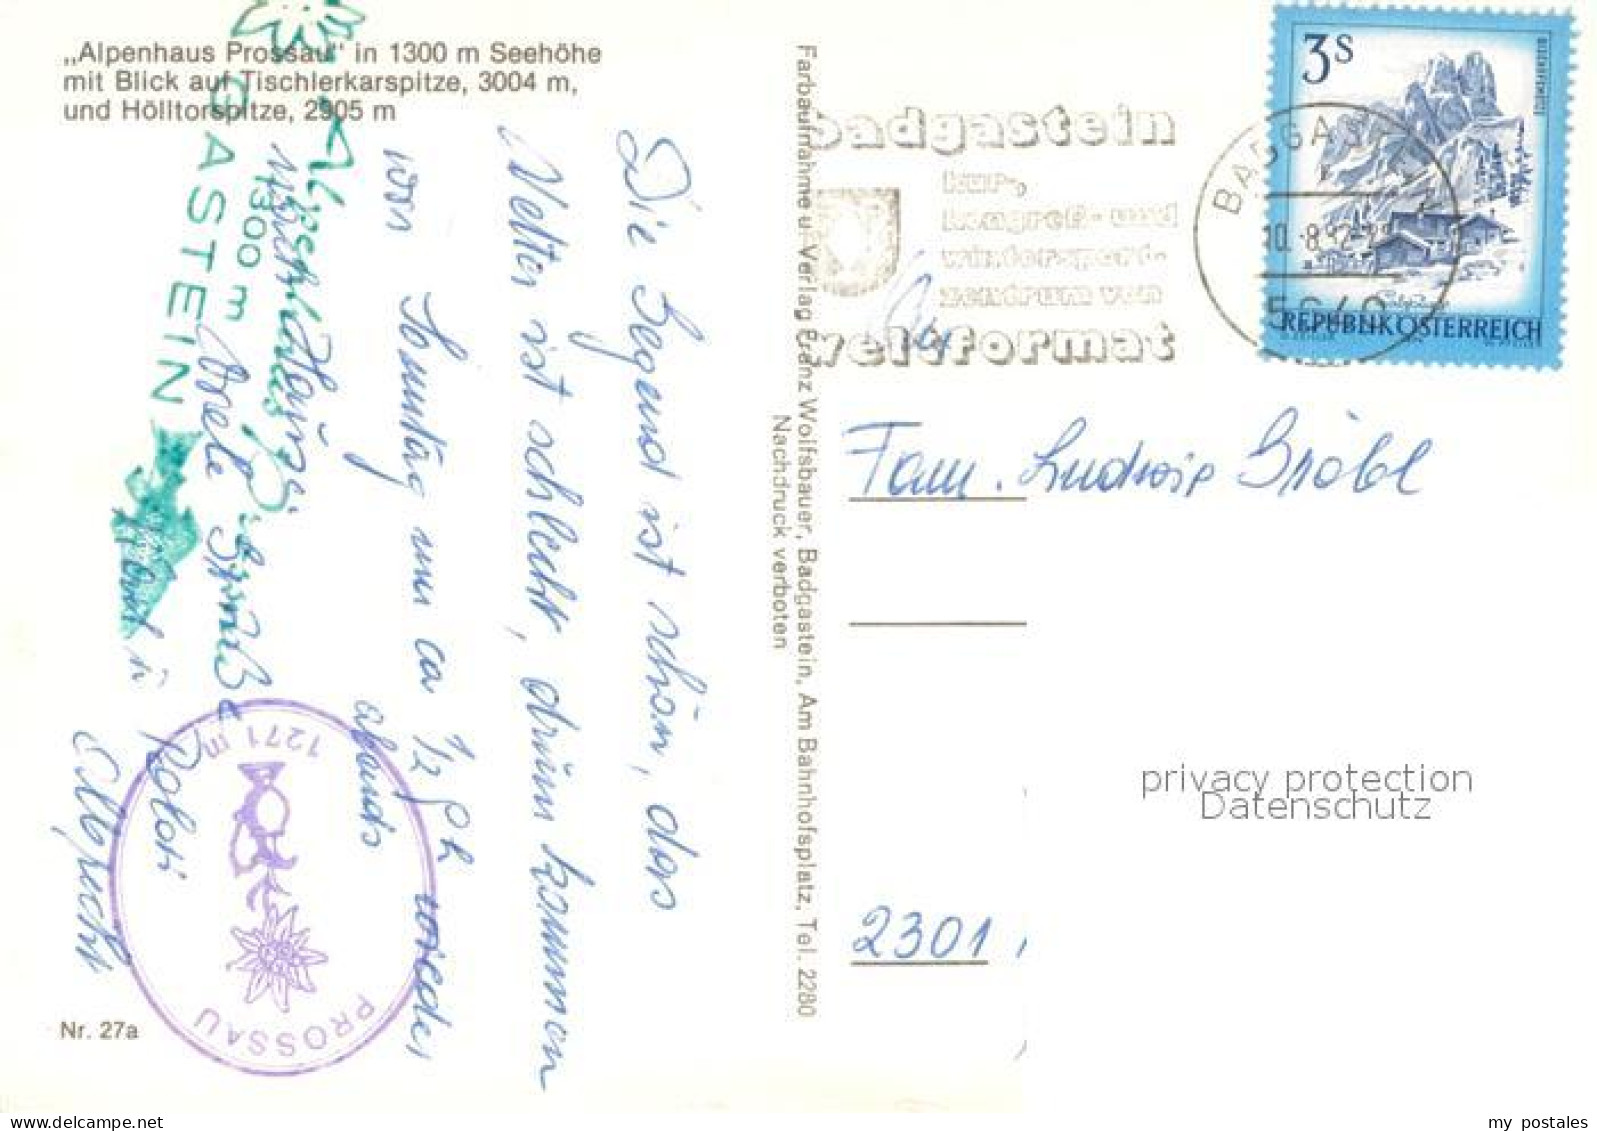 „Alpenhaus Prossau" in 1300 m Seehöhe
mit Blick auf Tischlerkarspitze, 3004 m,
und Hölltorspitze, 2905 m
Alpenhaus
1300 m
GASTEIN
Die Gegend ist schön, das
Wetter ist schlecht, drum kommen
wir Sonntag um ca 1/2 9h wieder
abends
nach Hause.
Viele Grüße
Horst u
Poldi
Albrecht
1271 m
PROSSAU
Nr. 27a
Farbaufnahme u. Verlag Franz Wolfsbauer, Badgastein, Am Bahnhofsplatz, Tel. 2280
Nachdruck verboten
badgastein
kur-,
kongreß- und
wintersport-
zentrum von
weltformat
BADGASTEIN
10. 8. 82
5640
3S
REPUBLIK ÖSTERREICH
An
Fam. Ludwig Gröbl
2301
privacy protection
Datenschutz
my postales